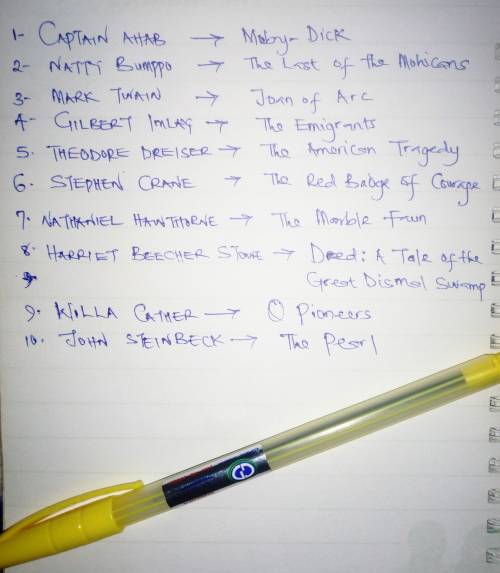 1- CAPTAIN AHAB → Moby-Dick
2- NATTY BUMPPO → The Last of the Mohicans
3- MARK TWAIN → Joan of Arc
4- GILBERT IMLAY → The Emigrants
5. THEODORE DREISER → The American Tragedy
6. STEPHEN CRANE → The Red Badge of Courage
7. NATHANIEL HAWTHORNE → The Marble Faun
8. HARRIET BEECHER STOWE → Dred: A Tale of the
Great Dismal Swamp
9. WILLA CATHER → O Pioneers
10. JOHN STEINBECK → The Pearl
G